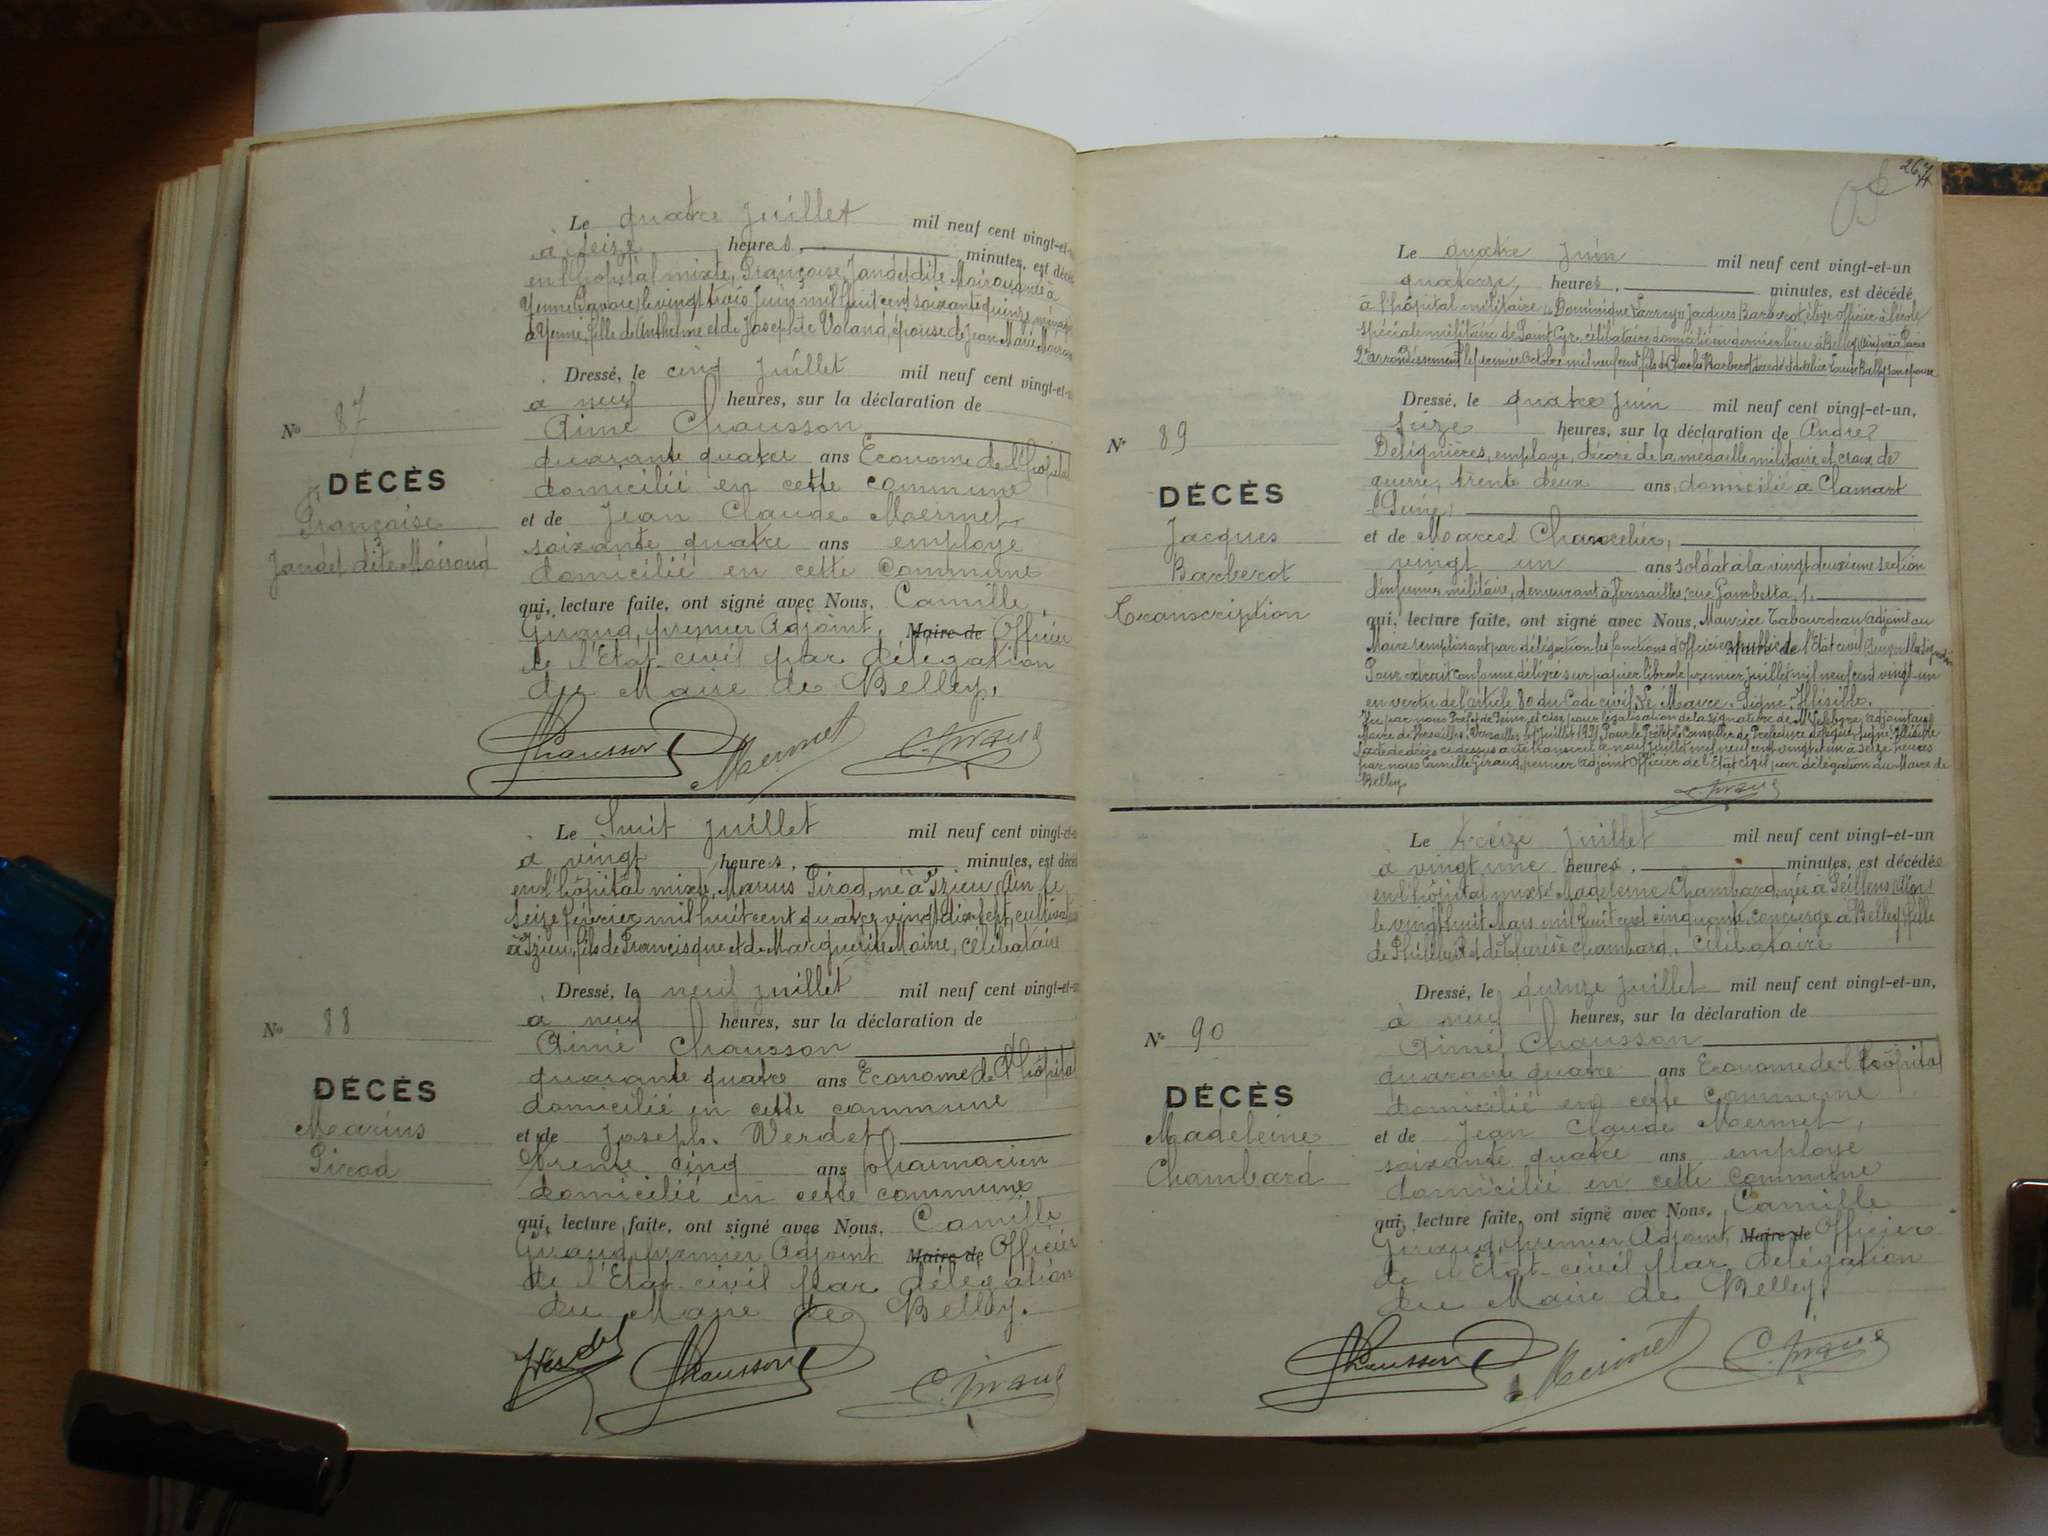 Le quatre Juillet mil neuf cent vingt-et-
à seize heures, minutes, est décé
en l'hôpital mixte, Françoise Jandet dite Moiroud née à
Yenne (Savoie) le vingt trois Juin mil huit cent soixante quinze, ménag
à Yenne, fille de Anthelme et de Josephte Voland, épouse de Jean Marie Moiroud
Dressé, le cinq Juillet mil neuf cent vingt-et-u
à neuf heures, sur la déclaration de
Aimé Chausson
quarante quatre ans Econome de l'hôpital
domicilié en cette commune
et de Jean Claude Mermet
soixante quatre ans employé
domicilié en cette commune
qui, lecture faite, ont signé avec Nous, Camille
Giraud, premier Adjoint, Maire de Officier
de l'Etat-civil par délégation
du Maire de Belley.
Chausson Mermet C. Giraud
No 87
DÉCÈS
Françoise
Jandet dite Moiroud
Le huit Juillet mil neuf cent vingt-et-u
à vingt heures, minutes, est décéd
en l'hôpital mixte, Marius Pirod, né à Izieu, Ain le
seize février mil huit cent quatre vingt dix sept, cultivat
à Izieu, fils de Francisque et de Marguerite Moine, célibataire
Dressé, le neuf Juillet mil neuf cent vingt-et-u
à neuf heures, sur la déclaration de
Aimé Chausson
quarante quatre ans Econome de l'hôpital
domicilié en cette commune
et de Joseph Verdet
trente cinq ans pharmacien
domicilié en cette commune
qui, lecture faite, ont signé avec Nous, Camille
Giraud, premier Adjoint Maire de Officier
de l'Etat-civil par délégation
du Maire de Belley.
Verdet Chausson C. Giraud
No 88
DÉCÈS
Marius
Pirod
267
Le quatre Juin mil neuf cent vingt-et-un
quatorze heures, minutes, est décédé
à l'hôpital militaire "Dominique Larrey" Jacques Barberot élève officier à l'école
spéciale militaire de Saint Cyr, célibataire, domicilié en dernier lieu à Belley (Ain) né à Paris
2e arrondissement le premier Octobre mil neuf cent, fils de Charles Barberot décédé et de Alice Louise Bally son épouse
Dressé, le quatre Juin mil neuf cent vingt-et-un,
seize heures, sur la déclaration de André
Designières, employé, décoré de la médaille militaire et croix de
guerre, trente deux ans, domicilié à Clamart
(Seine)
et de Marcel Chancelier,
vingt un ans soldat à la vingt deuxième section
d'infirmiers militaire, demeurant à Versailles, rue Gambetta, 1,
qui, lecture faite, ont signé avec Nous, Maurice Tabourdeau adjoint au
Maire remplissant par délégation les fonctions d'Officier public de l'Etat civil
Pour extrait conforme délivré sur papier libre le premier Juillet mil neuf cent vingt-un
en vertu de l'article 80 du Code civil, Le Maire, Signé: Illisible.
Vu par nous Préfet de Seine et Oise, pour légalisation de la signature de M. Lefebvre, adjoint au
Maire de Versailles. Versailles Juillet 1921 Pour le Préfet le Conseiller de Préfecture délégué, signé: Illisible
L'acte de décès ci dessus a été transcrit le neuf Juillet mil neuf cent vingt et un à seize heures
par nous Camille Giraud, premier Adjoint Officier de l'Etat Civil par délégation du Maire de
Belley.
C. Giraud
No 89
DÉCÈS
Jacques
Barberot
Transcription
Le treize Juillet mil neuf cent vingt-et-un
à vingt une heures, minutes, est décédée
en l'hôpital mixte Madeleine Chambard, née à Seillens (Ain)
le vingt huit Mars mil huit cent cinquante, concierge à Belley, fille
de Philibert et de Thérèse Chambard, célibataire
Dressé, le quinze Juillet mil neuf cent vingt-et-un,
à neuf heures, sur la déclaration de
Aimé Chausson
quarante quatre ans Econome de l'hôpital
domicilié en cette commune
et de Jean Claude Mermet,
soixante quatre ans employé
domicilié en cette commune
qui, lecture faite, ont signé avec Nous, Camille
Giraud, premier Adjoint, Maire de Officier
de l'Etat-civil par délégation
du Maire de Belley,
Chausson Mermet C. Giraud
No 90
DÉCÈS
Madeleine
Chambard